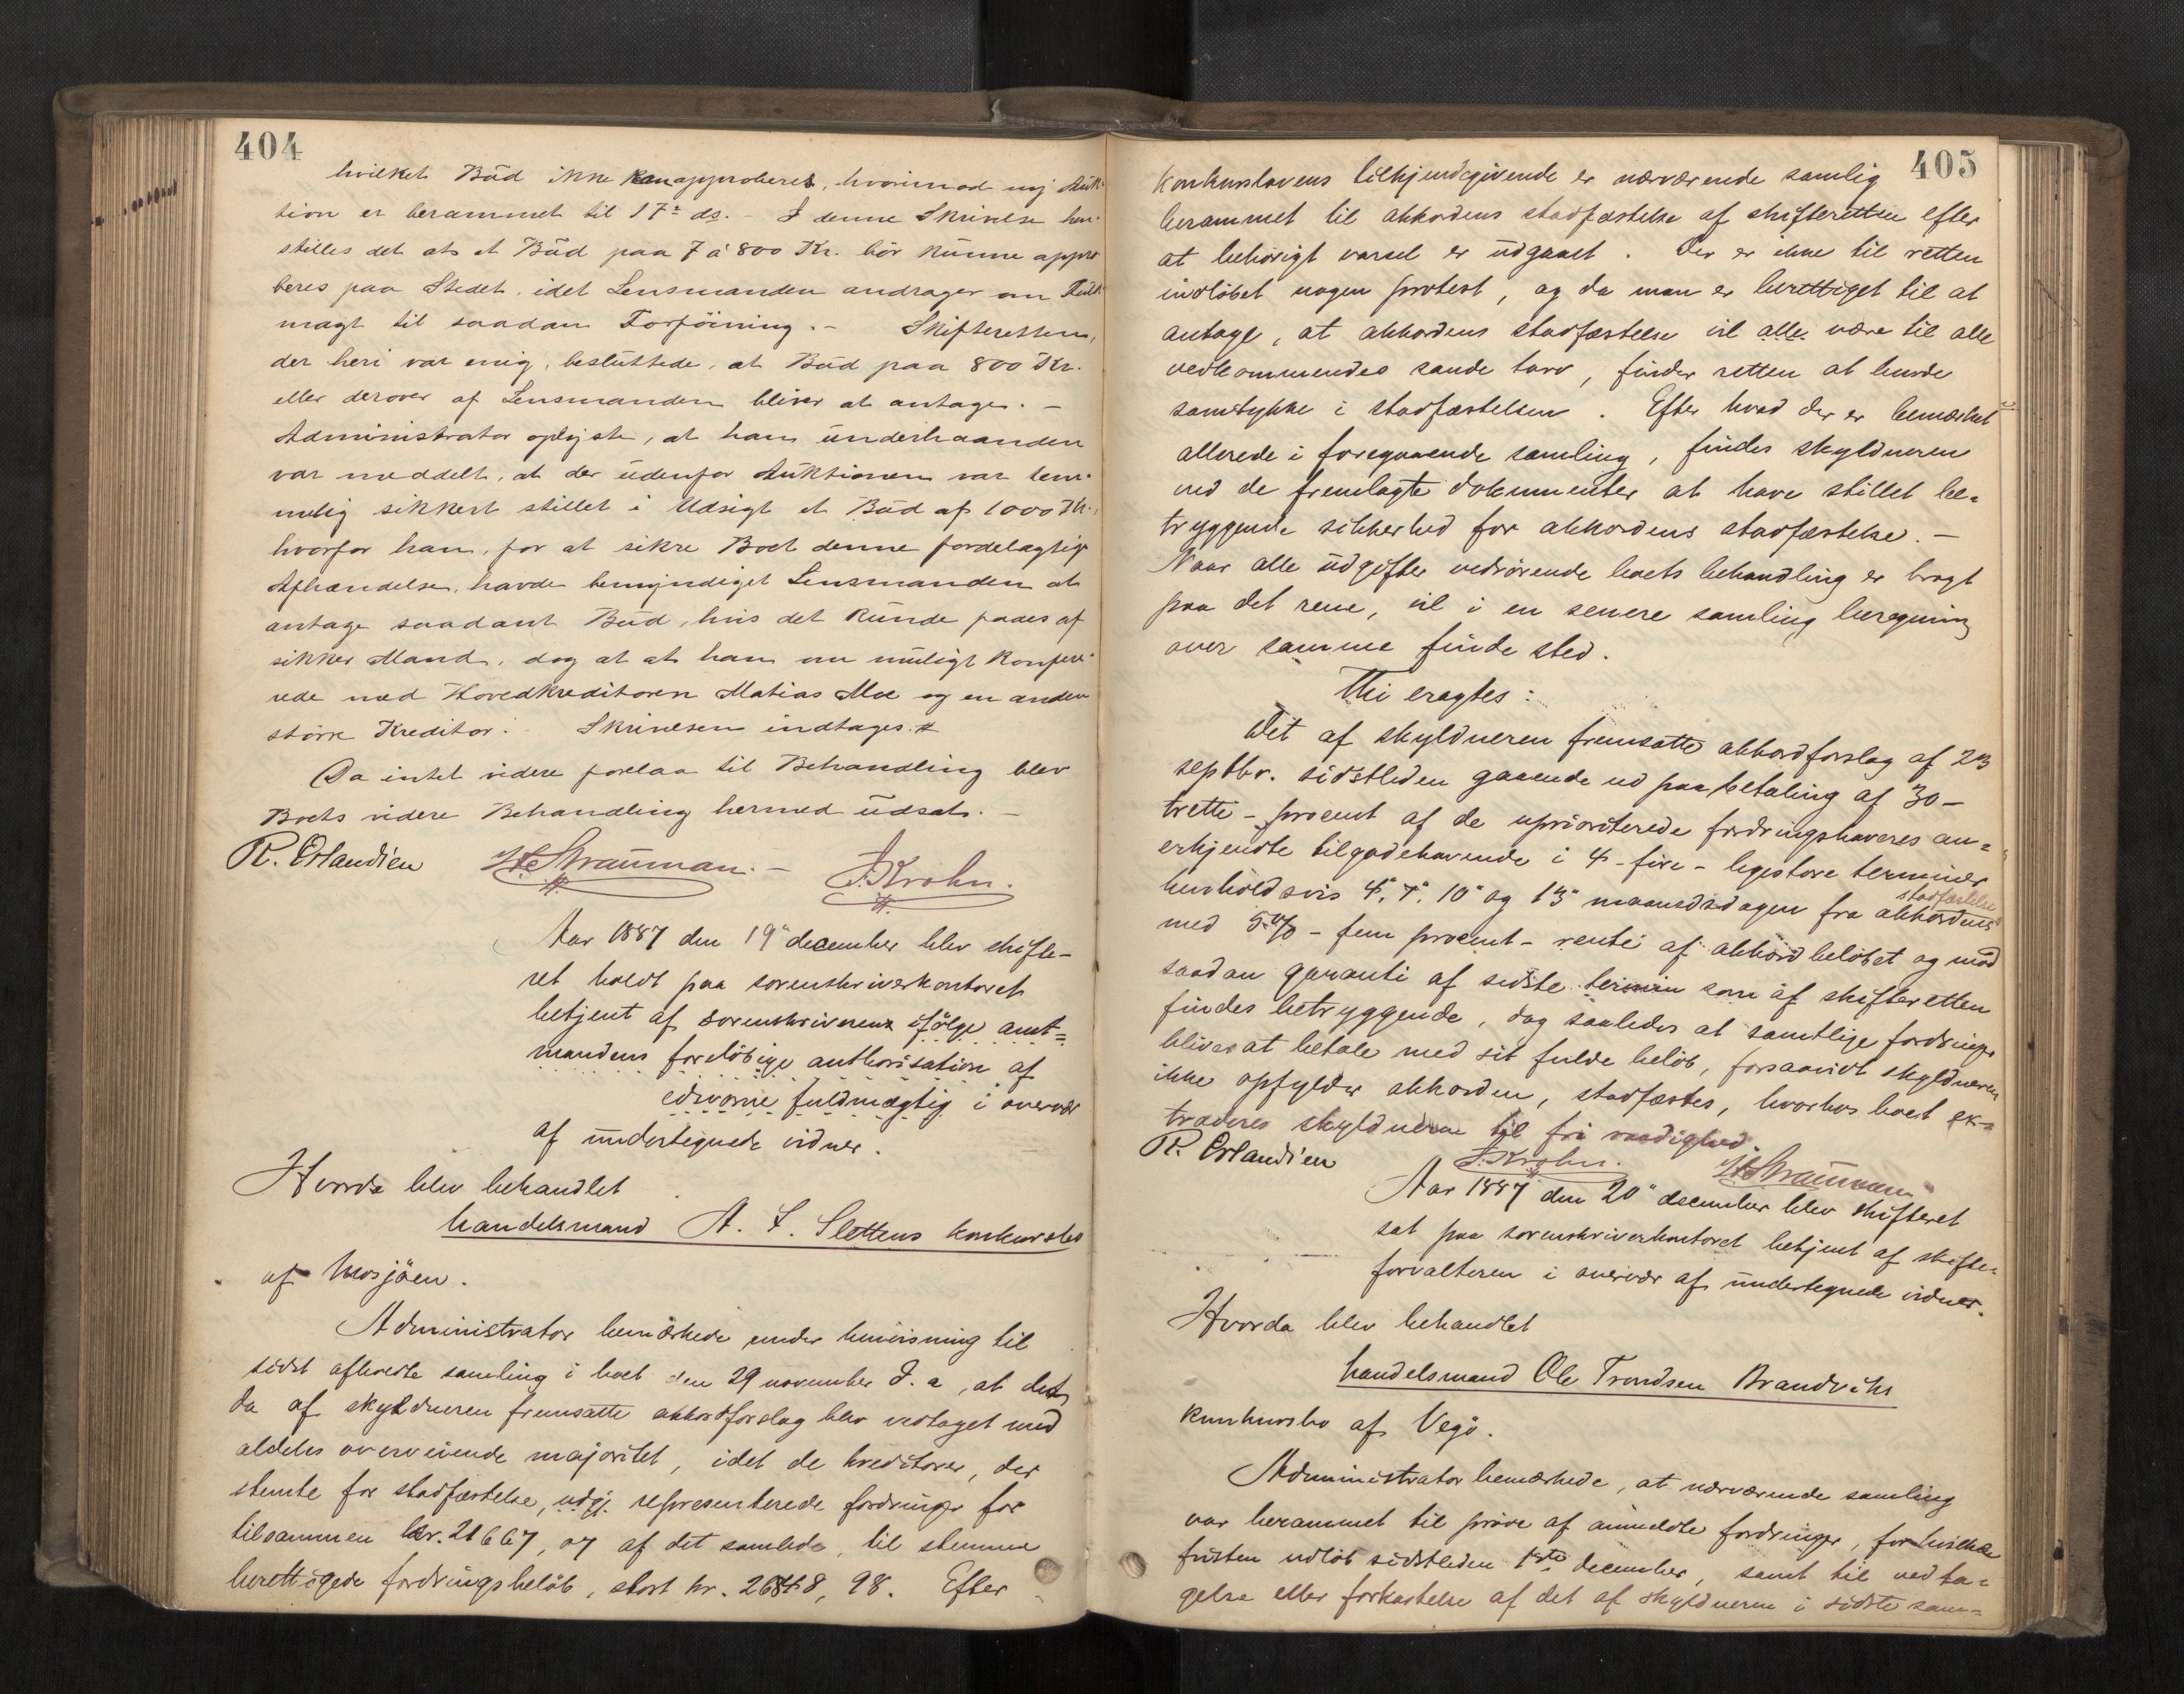 404
hvilket Büd ikke kan approberes, hvorimod ny Auk-
tion er berammet til 17de ds. - I denne Skrivelse hen-
stilles det at et Büd paa 7 à 800 Kr. bör künne appro
beres paa Stedet, idet Lensmanden andrager om Füld
magt til saadan Forföining. - Skifteretten,
der heri var enig, beslüttede, at Büd paa 800 Kr.
eller derover af Lensmanden bliver at antage. -
Administrator oplyste, at ham ünderhaanden
var meddelt, at der üdenfor Auktionen var tem-
melig sikkert stillet i Udsigt et Büd af 1000 Kr.,
hvorfor han, for at sikre Boet denne fordelagtige
Afhændelse, havde bemyndiget Lensmanden at
antage saadant Büd, hvis det künde faaes af
sikker Mand, dog at at han om müligt konfere-
rede med Hovedkreditoren Matias Moe og en anden
större Kreditor. - Skrivelsen indtages. #
Da intet videre forelaa til Behandling blev
Boets videre Behandling hermed üdsat. -
R. Erlandsen H. Straüman. - J. Krohn.
Aar 1887 den 19" december blev skifte-
ret holdt paa sorenskriverkontoret
betjent af sorenskriverens ifölge amt=
mandens forelöbige authorisation af
edsvorne füldmægtig i overvær
af ündertegnede vidner.
Hvorda blev behandlet
handelsmand A. F. Slettens konkursbo
af Mosjöen.
Administrator bemærkede under henvisning til
sidst afholdte samling i boet den 29 november d. a, at det
da af skyldneren fremsatte akkordforslag blev vedtaget med
aldeles overveiende majoritet, idet de kreditorer, der
stemte for stadfæstelse, udgj. representerede fordringer for
tilsammen kr. 21667, 07 af det samlede, til stemme
berettigede fordringsbelöb, stort kr. 26848, 98. Efter
405
Konkurslovens tilkjendegivende er nærværende samlig
berammet til akkordens stadfæstelse af skifteretten efter
at behörigt varsel er üdgaaet. Der er ikke til retten
indlöbet nogen protest, og da man er berettiget til at
antage, at akkordens stadfæstelse vil alle være til alle
vedkommendes sande tarv, finder retten at burde
samtykke i stadfæstelsen. Efter hvad der er bemærket
allerede i foregaaende samling, findes skyldneren
ved de fremlagte dokumenter at have stillet be=
tryggende sikkerhed for akkordens stadfæstelse. -
Naar alle üdgifter vedrörende boets behandling er bragt
paa det rene, vil i en senere samling beregning
over samme finde sted.
Thi eragtes:
Det af skyldneren fremsatte akkordforslag af 23
septbr. sidstleden gaaende ud paa betaling af 30 -
trette - procent af de uprioriterede fordringshaveres an=
erkjendte tilgodehavende i 4 - fire - ligestore terminer
henholdsvis 4", 7", 10" og 13" maanedsdagen fra akkordens stadfæstelse
med 5 % - fem procent - rente af akkordbelöbet og mod
saadan garanti af sidste termin som af skifteretten
findes betryggende, dog saaledes at samtlige fordringer
bliver at betale med sit fulde belöb, forsaavidt skyldneren
ikke opfylder akkorden, stadfæstes, hvorhos boet ex=
traderes skyldneren til fri raadighed.
R. Erlandsen J. Krohn. H. Straüman
Aar 1887 den 20" december blev skifteret
sat paa sorenskriverkontoret betjent af skifte-
forvalteren i overvær af ündertegnede vidner.
Hvorda blev behandlet
handelsmand Ole Trondsen Brandviks
konkursbo af Vegö.
Administrator bemærkede, at nærværende samling
var berammet til pröve af anmeldte fordringer, for hvilke
fristen udlöb sidstleden 1ste december, samt til vedta=
gelse eller forkastelse af det af skyldneren i sidste sam=